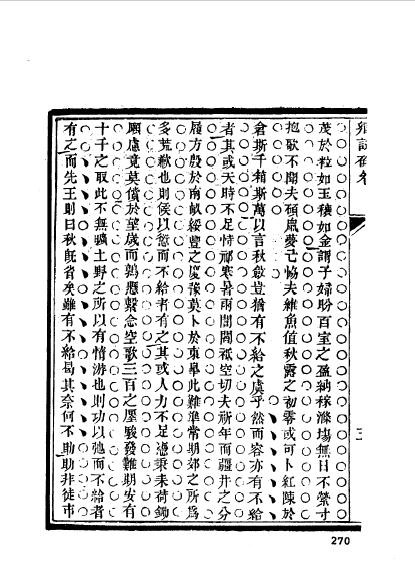 茂於粒如玉積如金謂子婦盼百室之盈納稼滌場無日不縈寸
抱歌不聞夫碩鼠憂已恊夫維魚值秋露之初零或可卜紅陳於
倉斯千箱斯萬以言秋斂豈猶有不給之虞乎然而容亦有不給
者其或天時不足恃祁寒暑雨閭閻祇空切夫祈年而疆井之分
履方殷於南畝綏豐之慶豫莫卜於東臯此難準常期郊之所爲
多荒歉也則侯以愆而不給者有之其或人力不足憑秉耒荷鋤
願虛竟莫償於望歲而鶉懸繫念空歌三百之廛駿發難期安有
十千之取此不無曠土野之所以有情游也則功以弛而不給者
有之而先王則曰秋旣省矣雖有不給曷其奈何不助助非徒市
270